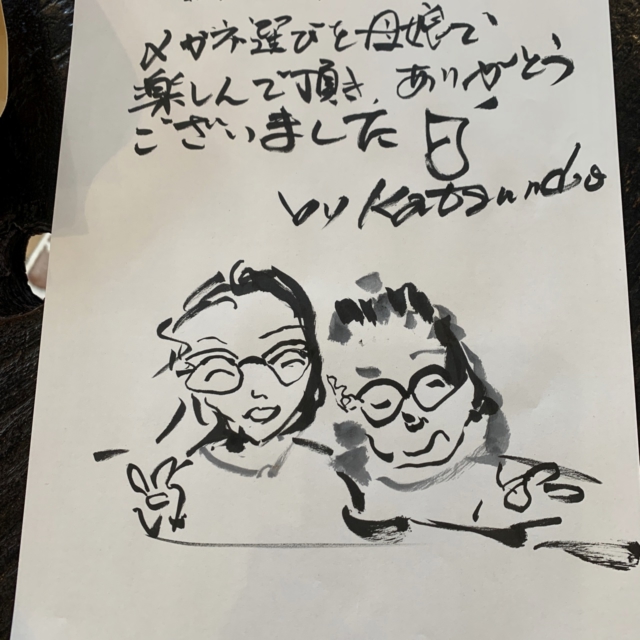 メガネ選びを母娘で
楽しんで頂き、ありがとう
ございました
by Katsundo